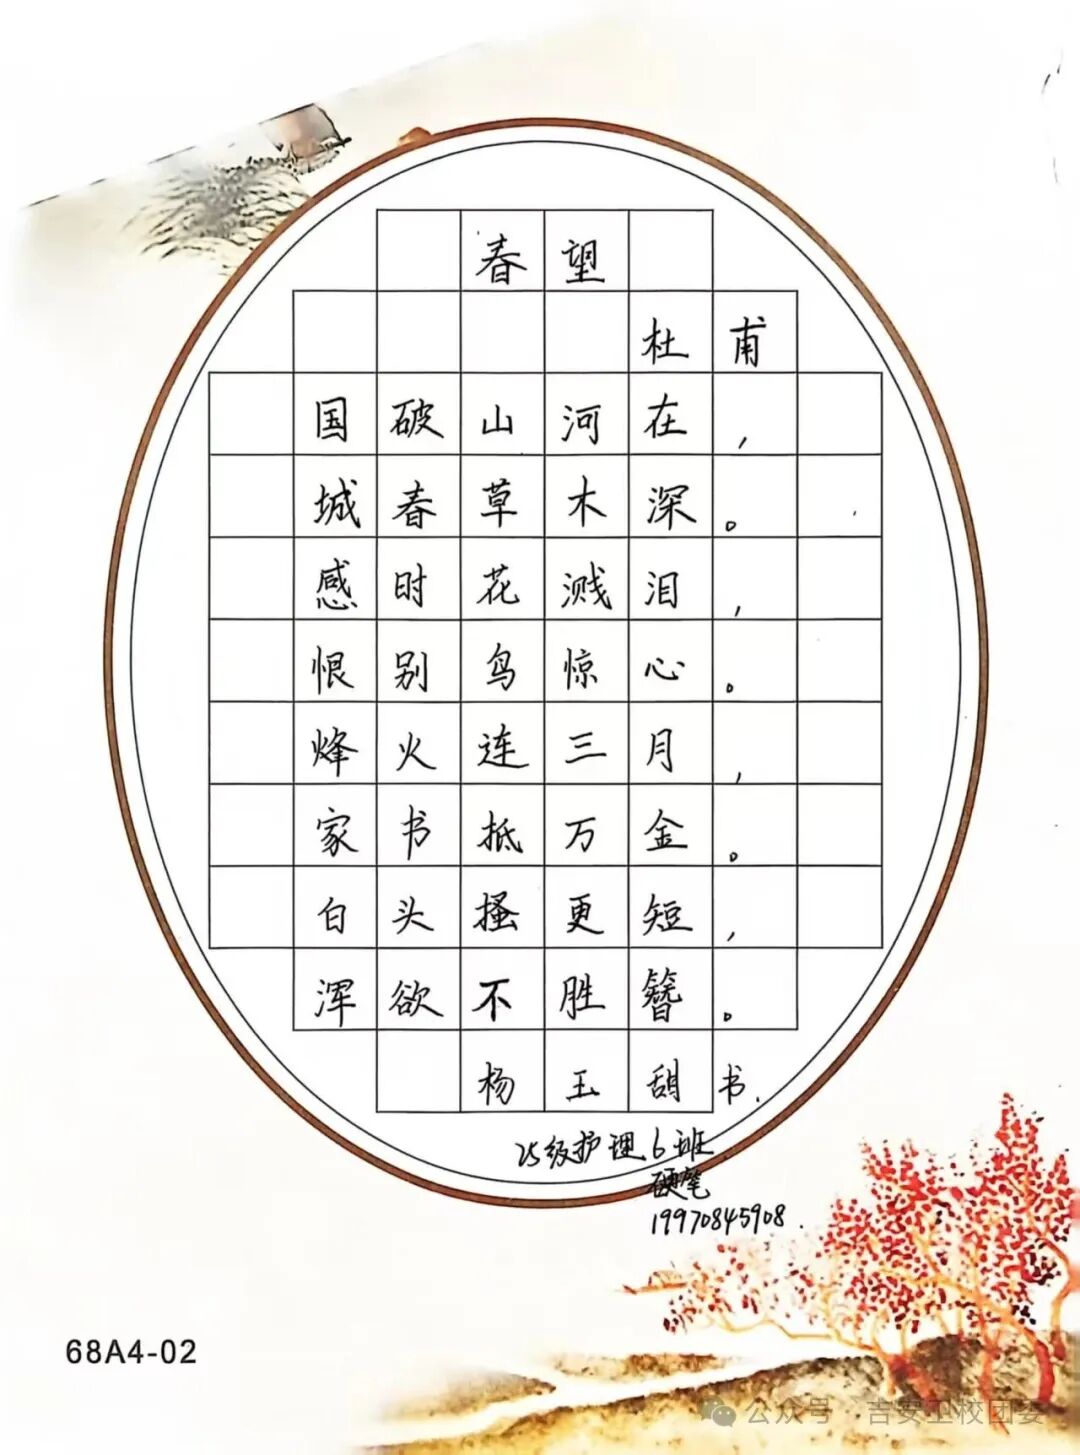 春望
杜甫
国破山河在，
城春草木深。
感时花溅泪，
恨别鸟惊心。
烽火连三月，
家书抵万金。
白头搔更短，
浑欲不胜簪。
杨玉胡书.
25级护理6班
硬笔
19970845908.
68A4-02
公众号 吉安卫校团委